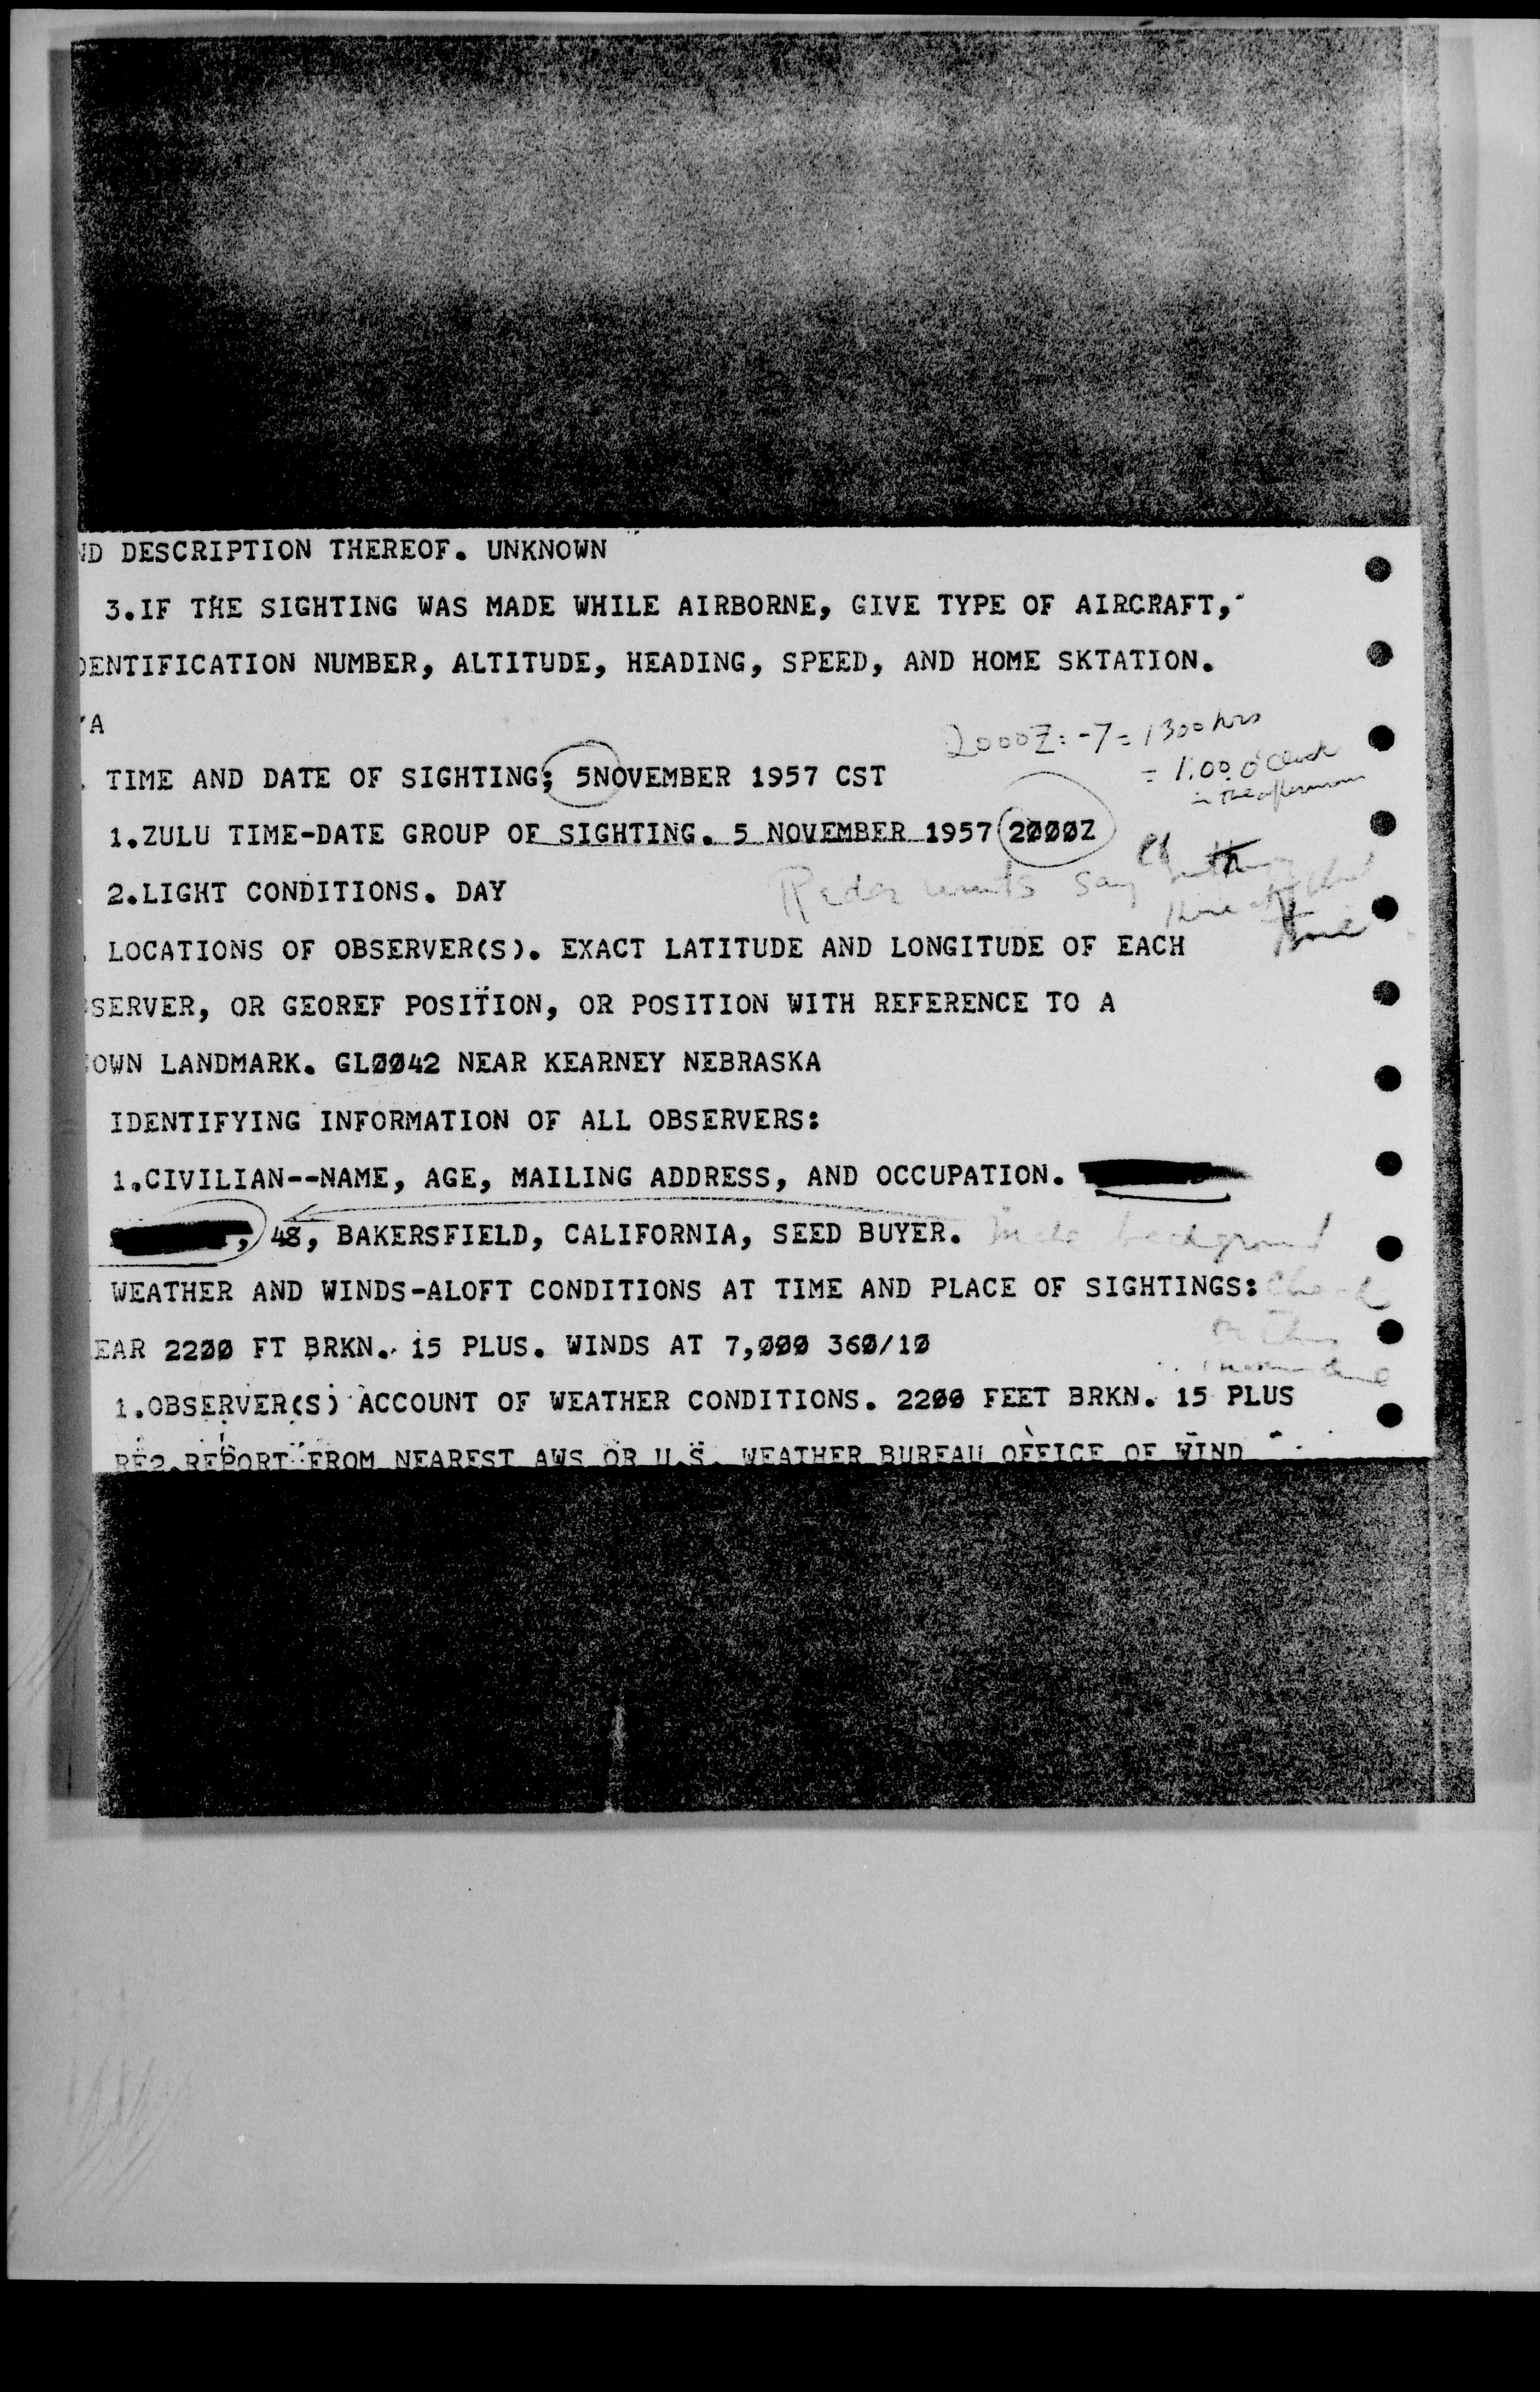 ND DESCRIPTION THEREOF. UNKNOWN
3.IF THE SIGHTING WAS MADE WHILE AIRBORNE, GIVE TYPE OF AIRCRAFT,
DENTIFICATION NUMBER, ALTITUDE, HEADING, SPEED, AND HOME SKTATION.
/A
2000Z: -7 = 1300 hrs
= 1:00 o'clock
in the afternoon
. TIME AND DATE OF SIGHTING; 5NOVEMBER 1957 CST
1.ZULU TIME-DATE GROUP OF SIGHTING. 5 NOVEMBER 1957 2000Z
2.LIGHT CONDITIONS. DAY
say
time
. LOCATIONS OF OBSERVER(S). EXACT LATITUDE AND LONGITUDE OF EACH
SERVER, OR GEOREF POSITION, OR POSITION WITH REFERENCE TO A
OWN LANDMARK. GL0042 NEAR KEARNEY NEBRASKA
IDENTIFYING INFORMATION OF ALL OBSERVERS:
1.CIVILIAN--NAME, AGE, MAILING ADDRESS, AND OCCUPATION.
, 48, BAKERSFIELD, CALIFORNIA, SEED BUYER.
background
WEATHER AND WINDS-ALOFT CONDITIONS AT TIME AND PLACE OF SIGHTINGS:
check
EAR 2200 FT BRKN. 15 PLUS. WINDS AT 7,000 360/10
1.OBSERVER(S) ACCOUNT OF WEATHER CONDITIONS. 2200 FEET BRKN. 15 PLUS
RE2.REPORT FROM NEAREST AWS OR U.S. WEATHER BUREAU OFFICE OF WIND